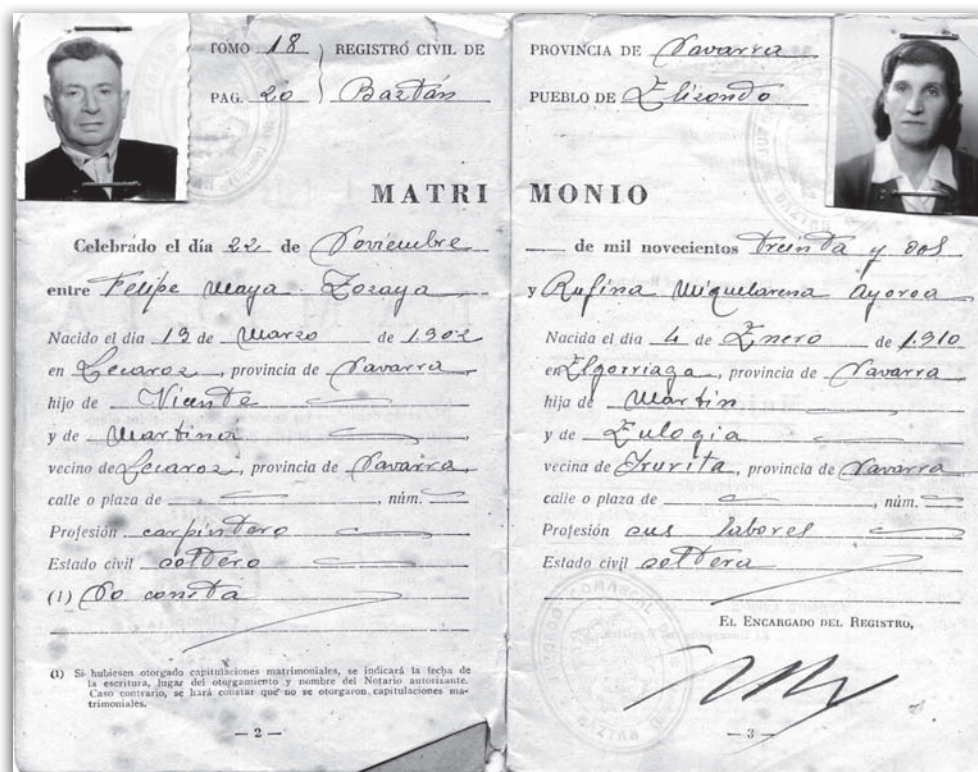 TOMO 18
REGISTRO CIVIL DE
PAG. 20
Baztán
MATRI
Celebrado el día 22 de Noviembre
entre Felipe Maya Zozaya
Nacido el dia 19 de Marzo de 1.902
en Lecaroz, provincia de Navarra
hijo de Vicente
y de Martina
vecino de Lecaroz, provincia de Navarra
calle o plaza de , núm.
Profesión carpintero
Estado civil soltero
(1) No consta
(1) Si hubiesen otorgado capitulaciones matrimoniales, se indicará la fecha de
la escritura, lugar del otorgamiento y nombre del Notario autorizante.
Caso contrario, se hará constar que no se otorgaron capitulaciones ma-
trimoniales.
— 2 —
PROVINCIA DE Navarra
PUEBLO DE Elizondo
MONIO
de mil novecientos treinta y dos
y Rufina Miquelarena Ayoroa
Nacida el dia 4 de Enero de 1.910
en Elgorriaga, provincia de Navarra
hija de Martín
y de Eulogia
vecina de Irurita, provincia de Navarra
calle o plaza de , núm.
Profesión sus labores
Estado civil soltera
EL ENCARGADO DEL REGISTRO,
— 3 —